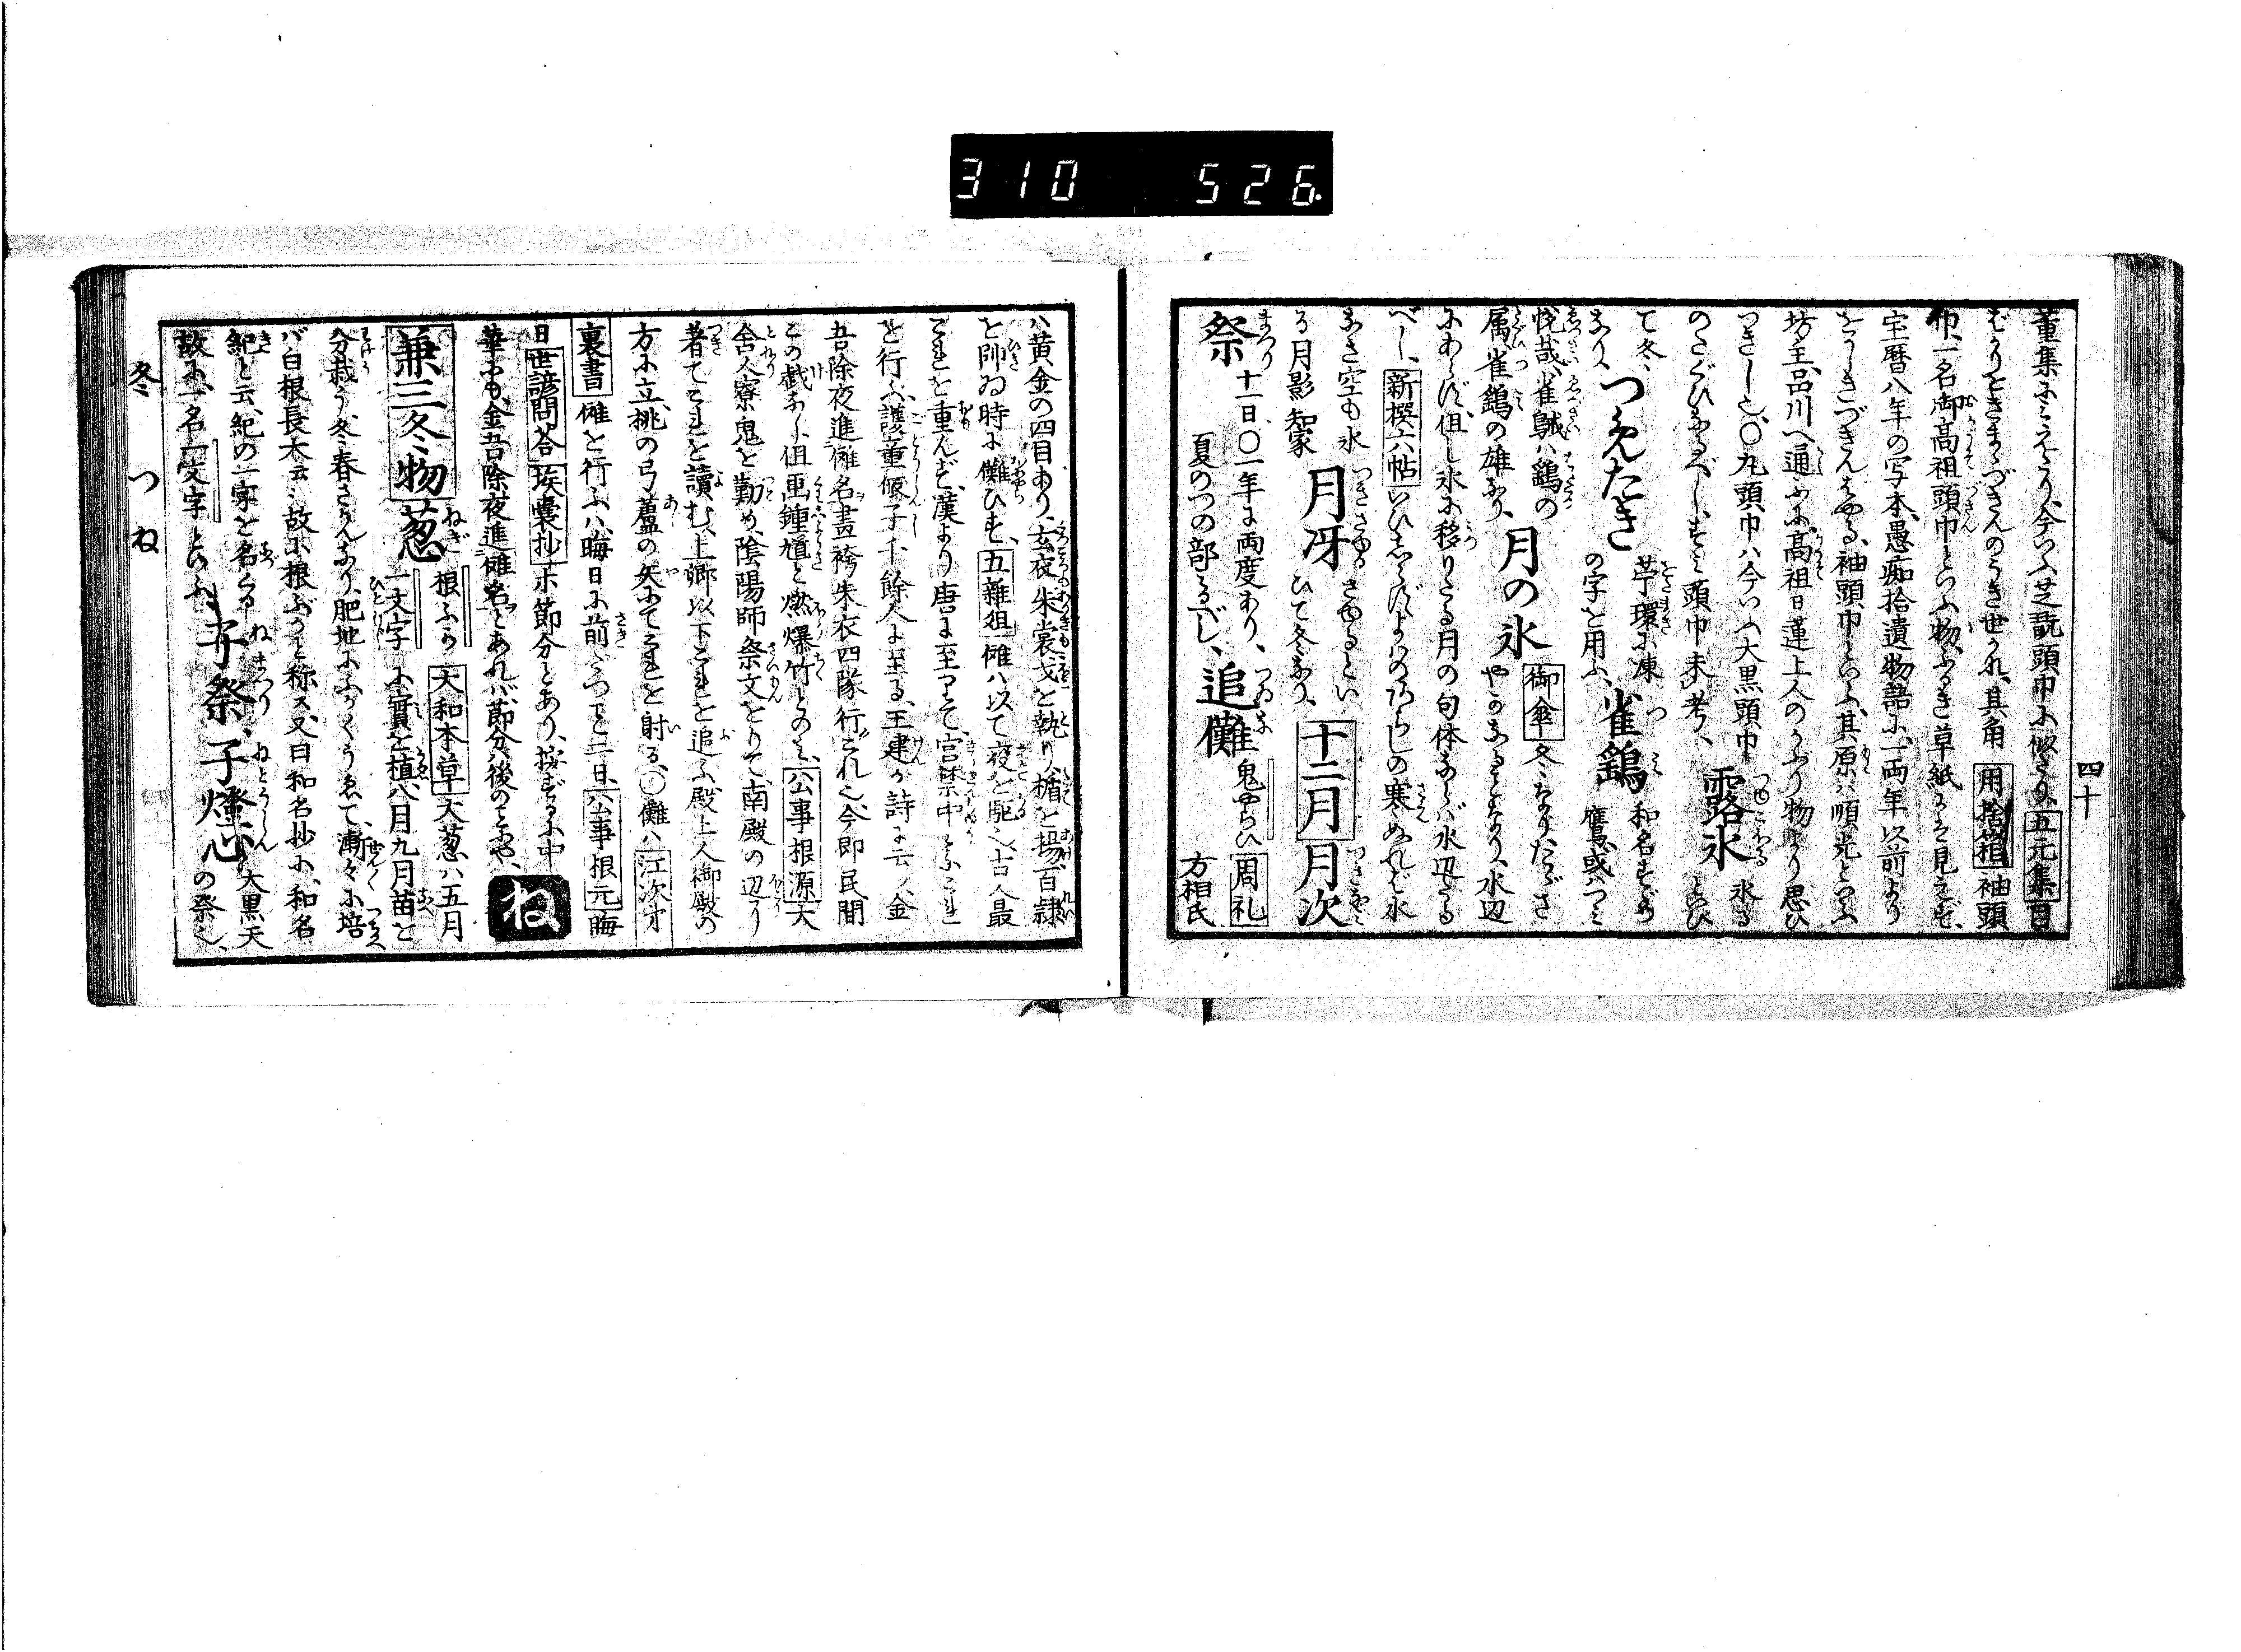 310 526
四十
董集にみえたり、今いふ芝翫頭巾に似たり、五元集 目
ばかりをきまゝづきんのうき世かな、其角 用捨箱 袖頭
巾、一名御高祖頭巾といふ物、ふるき草紙にはを見えず、
宝暦八年の写本、愚痴拾遺物語に、一両年以前より
をかしきづきんはやる、袖頭巾といふ、其原は順光といふ
坊主、品川へ通ふに、高祖日蓮上人のかぶり物より思ひ
つきしと、〇丸頭巾ハ今いふ大黒頭巾
のたぐひなるべし、すみ頭巾未考、 露氷 つゆこほる 氷る といひ
て冬、 つらたき 苧環に凍 の字を用ふ、 雀鷂 つみ 和名すゞめ 鷹、或ハつみ
なり、
悦哉ハ雀𪀚ハ鷂の
属雀鷂の雄なり、 月の氷 御傘 冬になりたがさ やかなるをなり、水辺
にあらず、但し氷に移りたる月の句体ならバ水辺たる
べし、 新撰六帖 いひしらずよはのあらしの寒ぬれど氷
なき空も氷
る月影 知家 月冴 つきさゆる さゆるとい ひて冬なり、 十二月 月次 つきなみ
祭 まつり 十一日、〇一年に両度あり、 夏のつの部にるべし、 追儺 つゐな 鬼やらひ 周礼 方相氏
ハ黄金の四目あり、玄衣朱裳戈を執り、楯を揚百隷
を帥ゐ時に儺ひす、 五雑俎 儺ハ以て疫を駆と、古人最
これを重んず、漢より唐に至つて、宮禁中をふこれ
を行ふ、護童侲子千餘人に至る、王建が詩に云ク、金
吾除夜進儺名、畫袴朱衣四隊行、これと、今即民間
この戯なし、但畫鍾馗と燃爆竹とのみ、 公事根源 大
舎人寮鬼を勤め、陰陽師祭文をとりて、南殿の辺り
着てこれを讀む、上卿以下これを追ふ、殿上人御殿の
方に立、桃の弓蘆の矢にてこれを射る、〇儺ハ 江次才
裏書 儺を行ふハ、晦日に前だつこと二日、 公事根元 晦
日 世諺問答 埃嚢抄 ホ節分とあり、按ずるに中
華にも、金吾除夜進儺名とあれバ、節分ハ後のことや、 ね
兼三冬物 葱 ねぎ 根ふか 一文字 大和本草 大葱ハ五月 に實を植、八月九月苗を
分栽う、冬春さかんなり、肥地にふかくうゑて、漸々に培
バ白根長大云々、故に根ぶかと称ス、又曰和名抄に、和名
紀と云、紀の一字を名くる 子祭 ねまつり 子燈心 ねとうしん 大黒天 の祭と、
故に、一名一文字といふ、
冬 つ ね